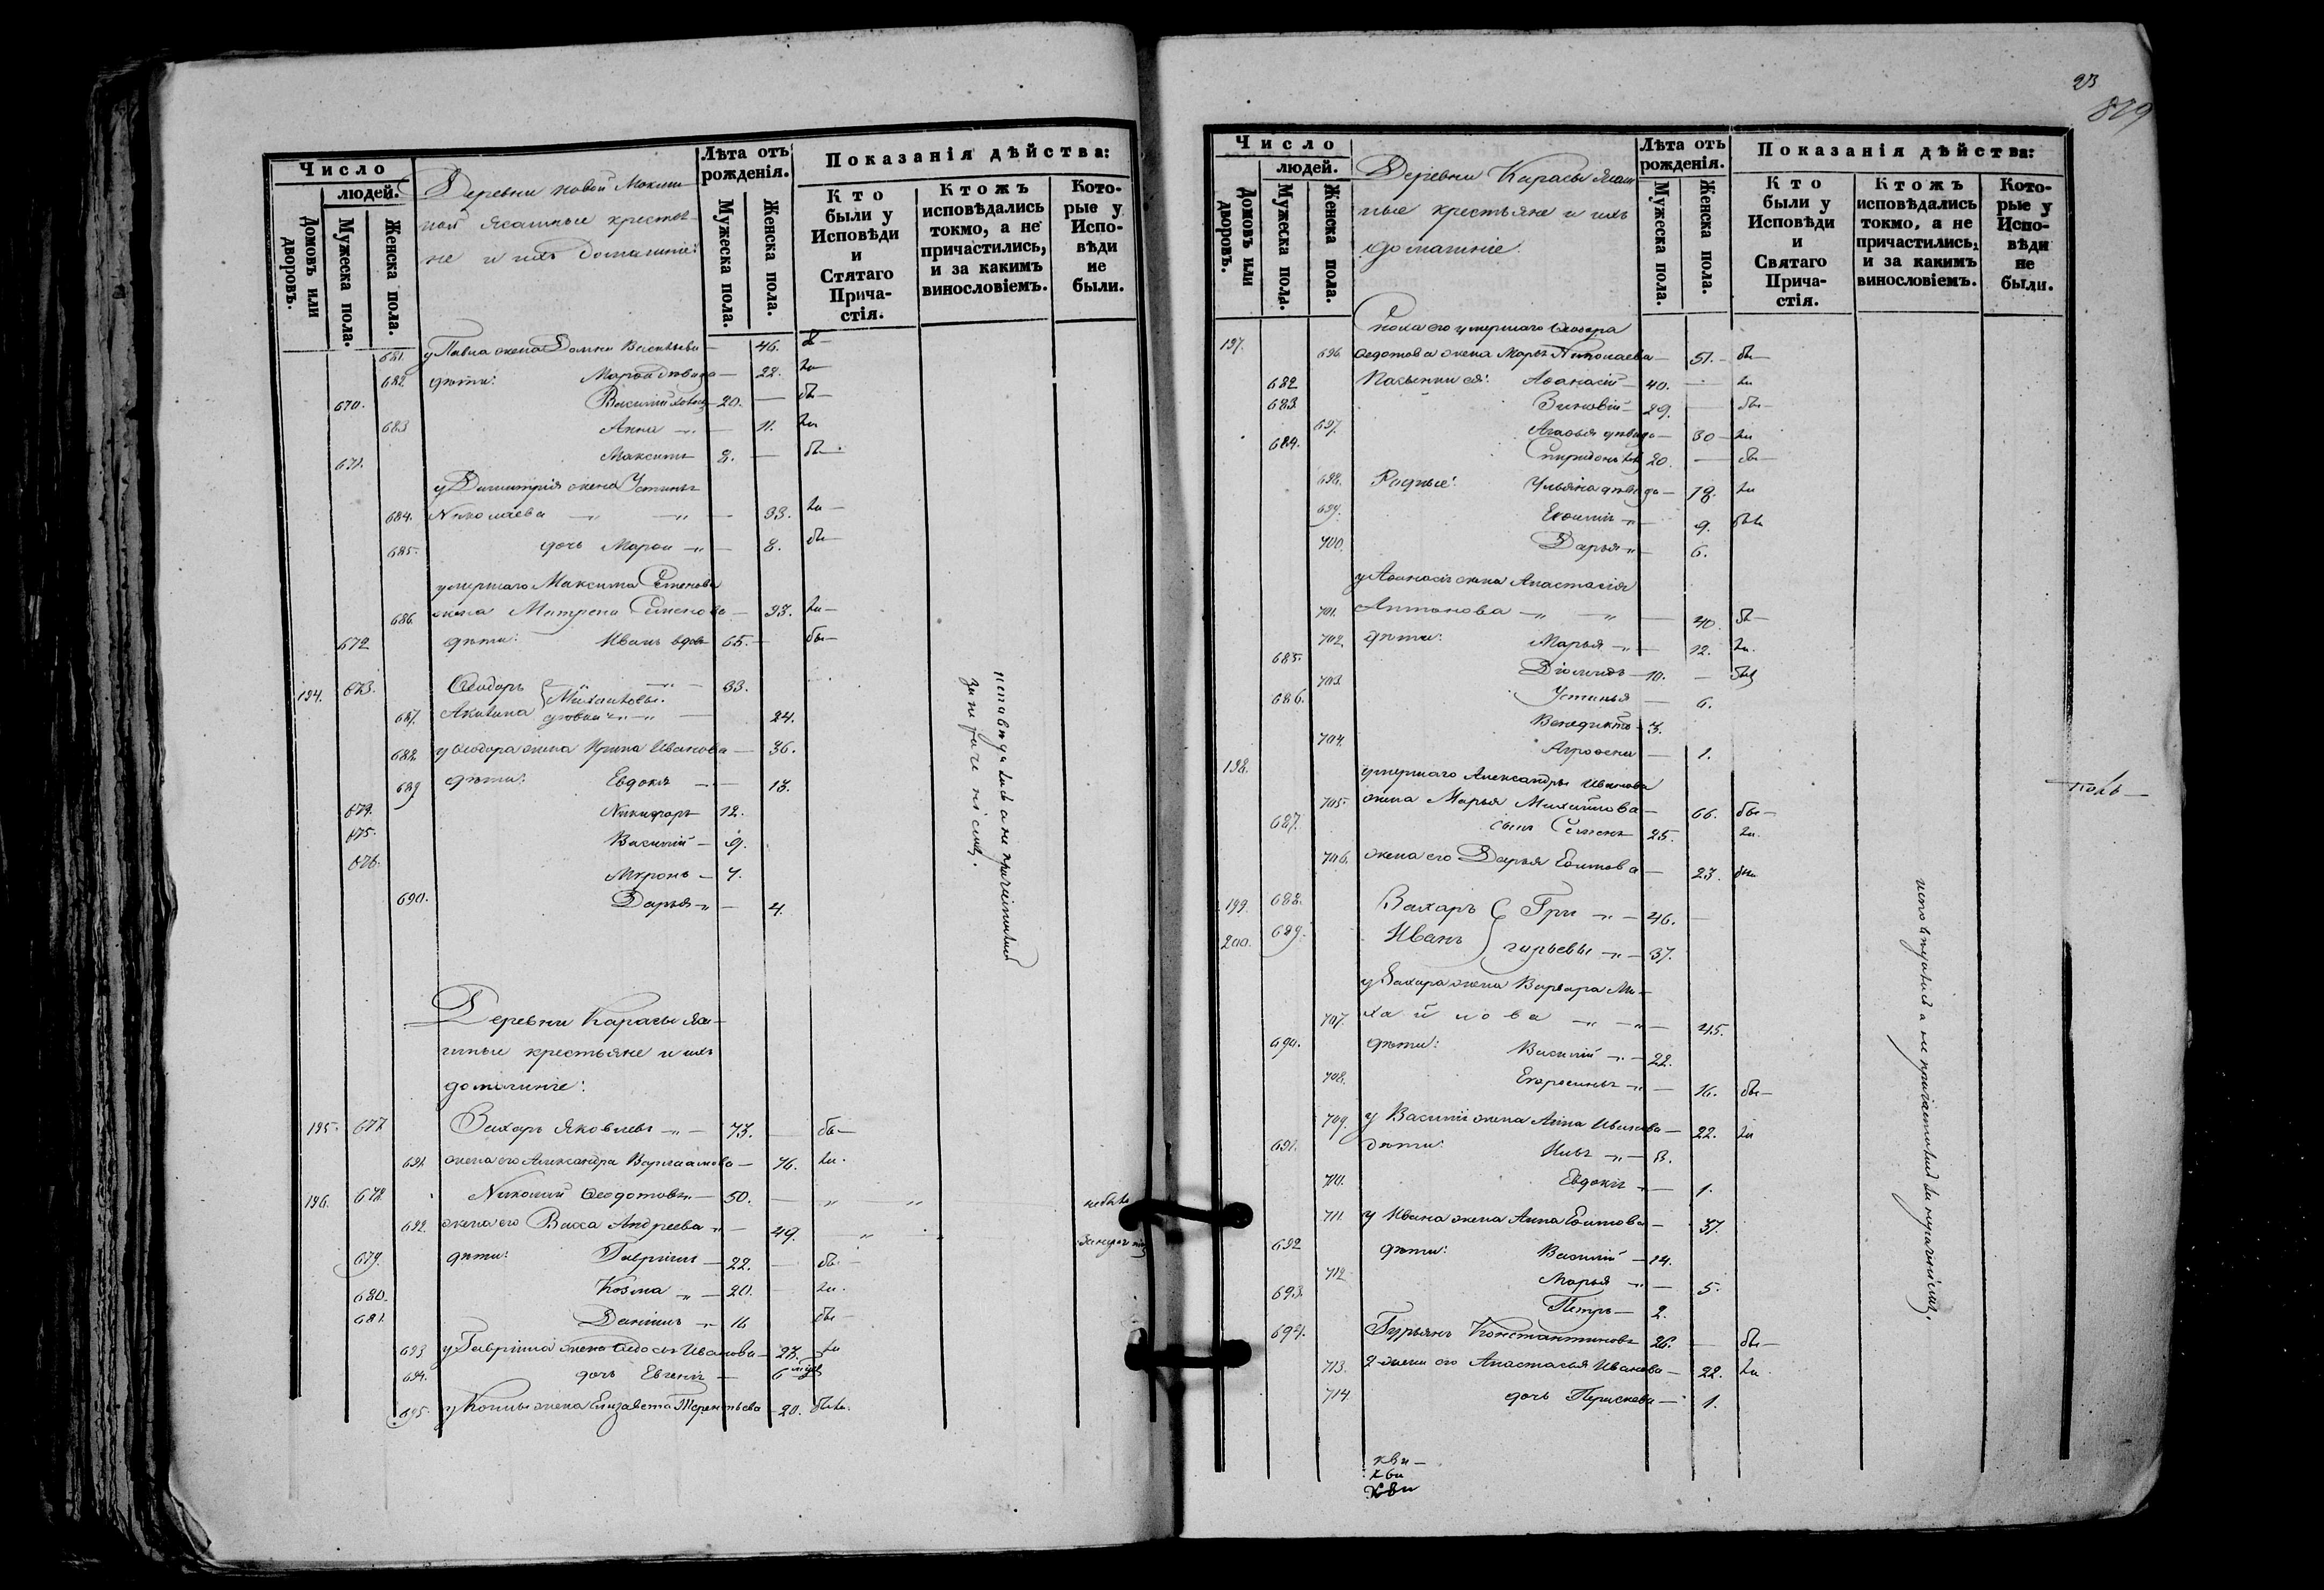 Число
людей.
Домовъ или дворовъ.
Мужеска пола.
Женска пола.
Деревни новой Мокши-
ной Ясашные крестья-
не и ихъ домашніе:
Лѣта отъ рожденія.
Мужеска пола.
Женска пола.
Показанія дѣйства:
Кто были у Исповѣди и Стятаго Прича-стія.
Ктожъ исповѣдались токмо, а не причастились, и за какимъ винословіемъ.
Кото-рые у Испо-вѣди не были.
681. у Павла жена Домна Васильева — 46.
682. дѣти: Марѳа дѣвица — 22.
670. Василій 20. — бы—
683 Анна — 11.
671. Максимъ 8. — бы—
у Димитрія жена Устинья
684. Николаева — 33.
685. дочь Марѳа — 8. бы—
умершаго Максима Семенова
686. жена Матрена Семенова — 93.
672 дѣти: Иванъ вдовъ 65. — бы—
194. 673. Ѳеодоръ 33.
687. Акилина Михайловы. дѣвка 24.
688. у Ѳеодора жена Ирина Иванова — 36.
689 дѣти: Евдокія — 13.
674. Никифоръ 12.
675. Василій — 9.
676. Миронъ — 7.
690. Дарья — 4.
исповѣдались а не причастились
Деревни Карасы Яса-
шные крестьяне и ихъ
домашніе:
195. 677 Захаръ Яковлевъ — 73. — бы—
691. жена его Александра Варлаамова — 76. ли.
196. 678. Николай Ѳедотовъ — 50. — небыли
692. жена его Васса Андреева — 49.
679. дѣти: Гавріилъ — 22. — бы—
680. Козма — 20. — ли.
681. Даніилъ — 16 бы—
693 у Гавріила жена Ѳедосья Иванова — 27. ли
694. дочь Евгенія — 6
695. у Козмы жена Елизавета Терентьева — 20. были.
23
829
Число
людей.
Домовъ или дворовъ.
Мужеска пола.
Женска пола.
Деревни Карасы Ясаш
ные крестьяне и ихъ
домашніе.
Лѣта отъ рожденія.
Мужеска пола.
Женска пола.
Показанія дѣйства:
Кто были у Исповѣди и Святаго Прича-стія.
Ктожъ исповѣдались токмо, а не причастились, и за какимъ винословіемъ.
Кото-рые у Испо-вѣди не были.
197. Сноха его умершаго Ѳеодора
696. Ѳедотова жена Марья Николаева — 51. — бы—
682 Пасынки ея: Аѳанасій — 40. — ли
683. Зиновій — 29. — бы—
697. Агаѳья дѣвица — 30 — ли
684. Спиридонъ 20. — бы—
698. Родные: Ульяна дѣвица — 18. ли
699. 9. были
700. Дарья — 6.
у Аѳанасія жена Анастасія
701. Антонова — 40. бы—
702. дѣти: Марья — 12. ли.
685. Діомидъ — 10. —
703. Устинья — 6.
686. Венедиктъ — 3.
704. Агрофена — 1.
198. умершаго Александра Иванова
705. жена Марья Михайлова — 66. бы—
687. сынъ Семенъ 25. ли.
706. жена его Дарья Ефимова — 23. были
199. 688. Захаръ Гри — 46. —
200. 689. Иванъ гурьевы — 37.
у Захара жена Варвара Ми-
707. хайлова — 45.
690. дѣти: Василій — 22.
708. Ефросинья — 16. бы—
709. у Василія жена Анна Иванова — 22. ли
691. дѣти: 3.
710. Евдокія — 1.
711. у Ивана жена Анна Ефимова — 37.
692 дѣти: Василій — 14.
712 Марья — 5.
693. Петръ — 2.
694. Гурьянъ Константиновъ 26. — бы—
713. жена его Анастасья Иванова — 22. ли
714 дочь Парасковья — 1.
исповѣдались а не причастились